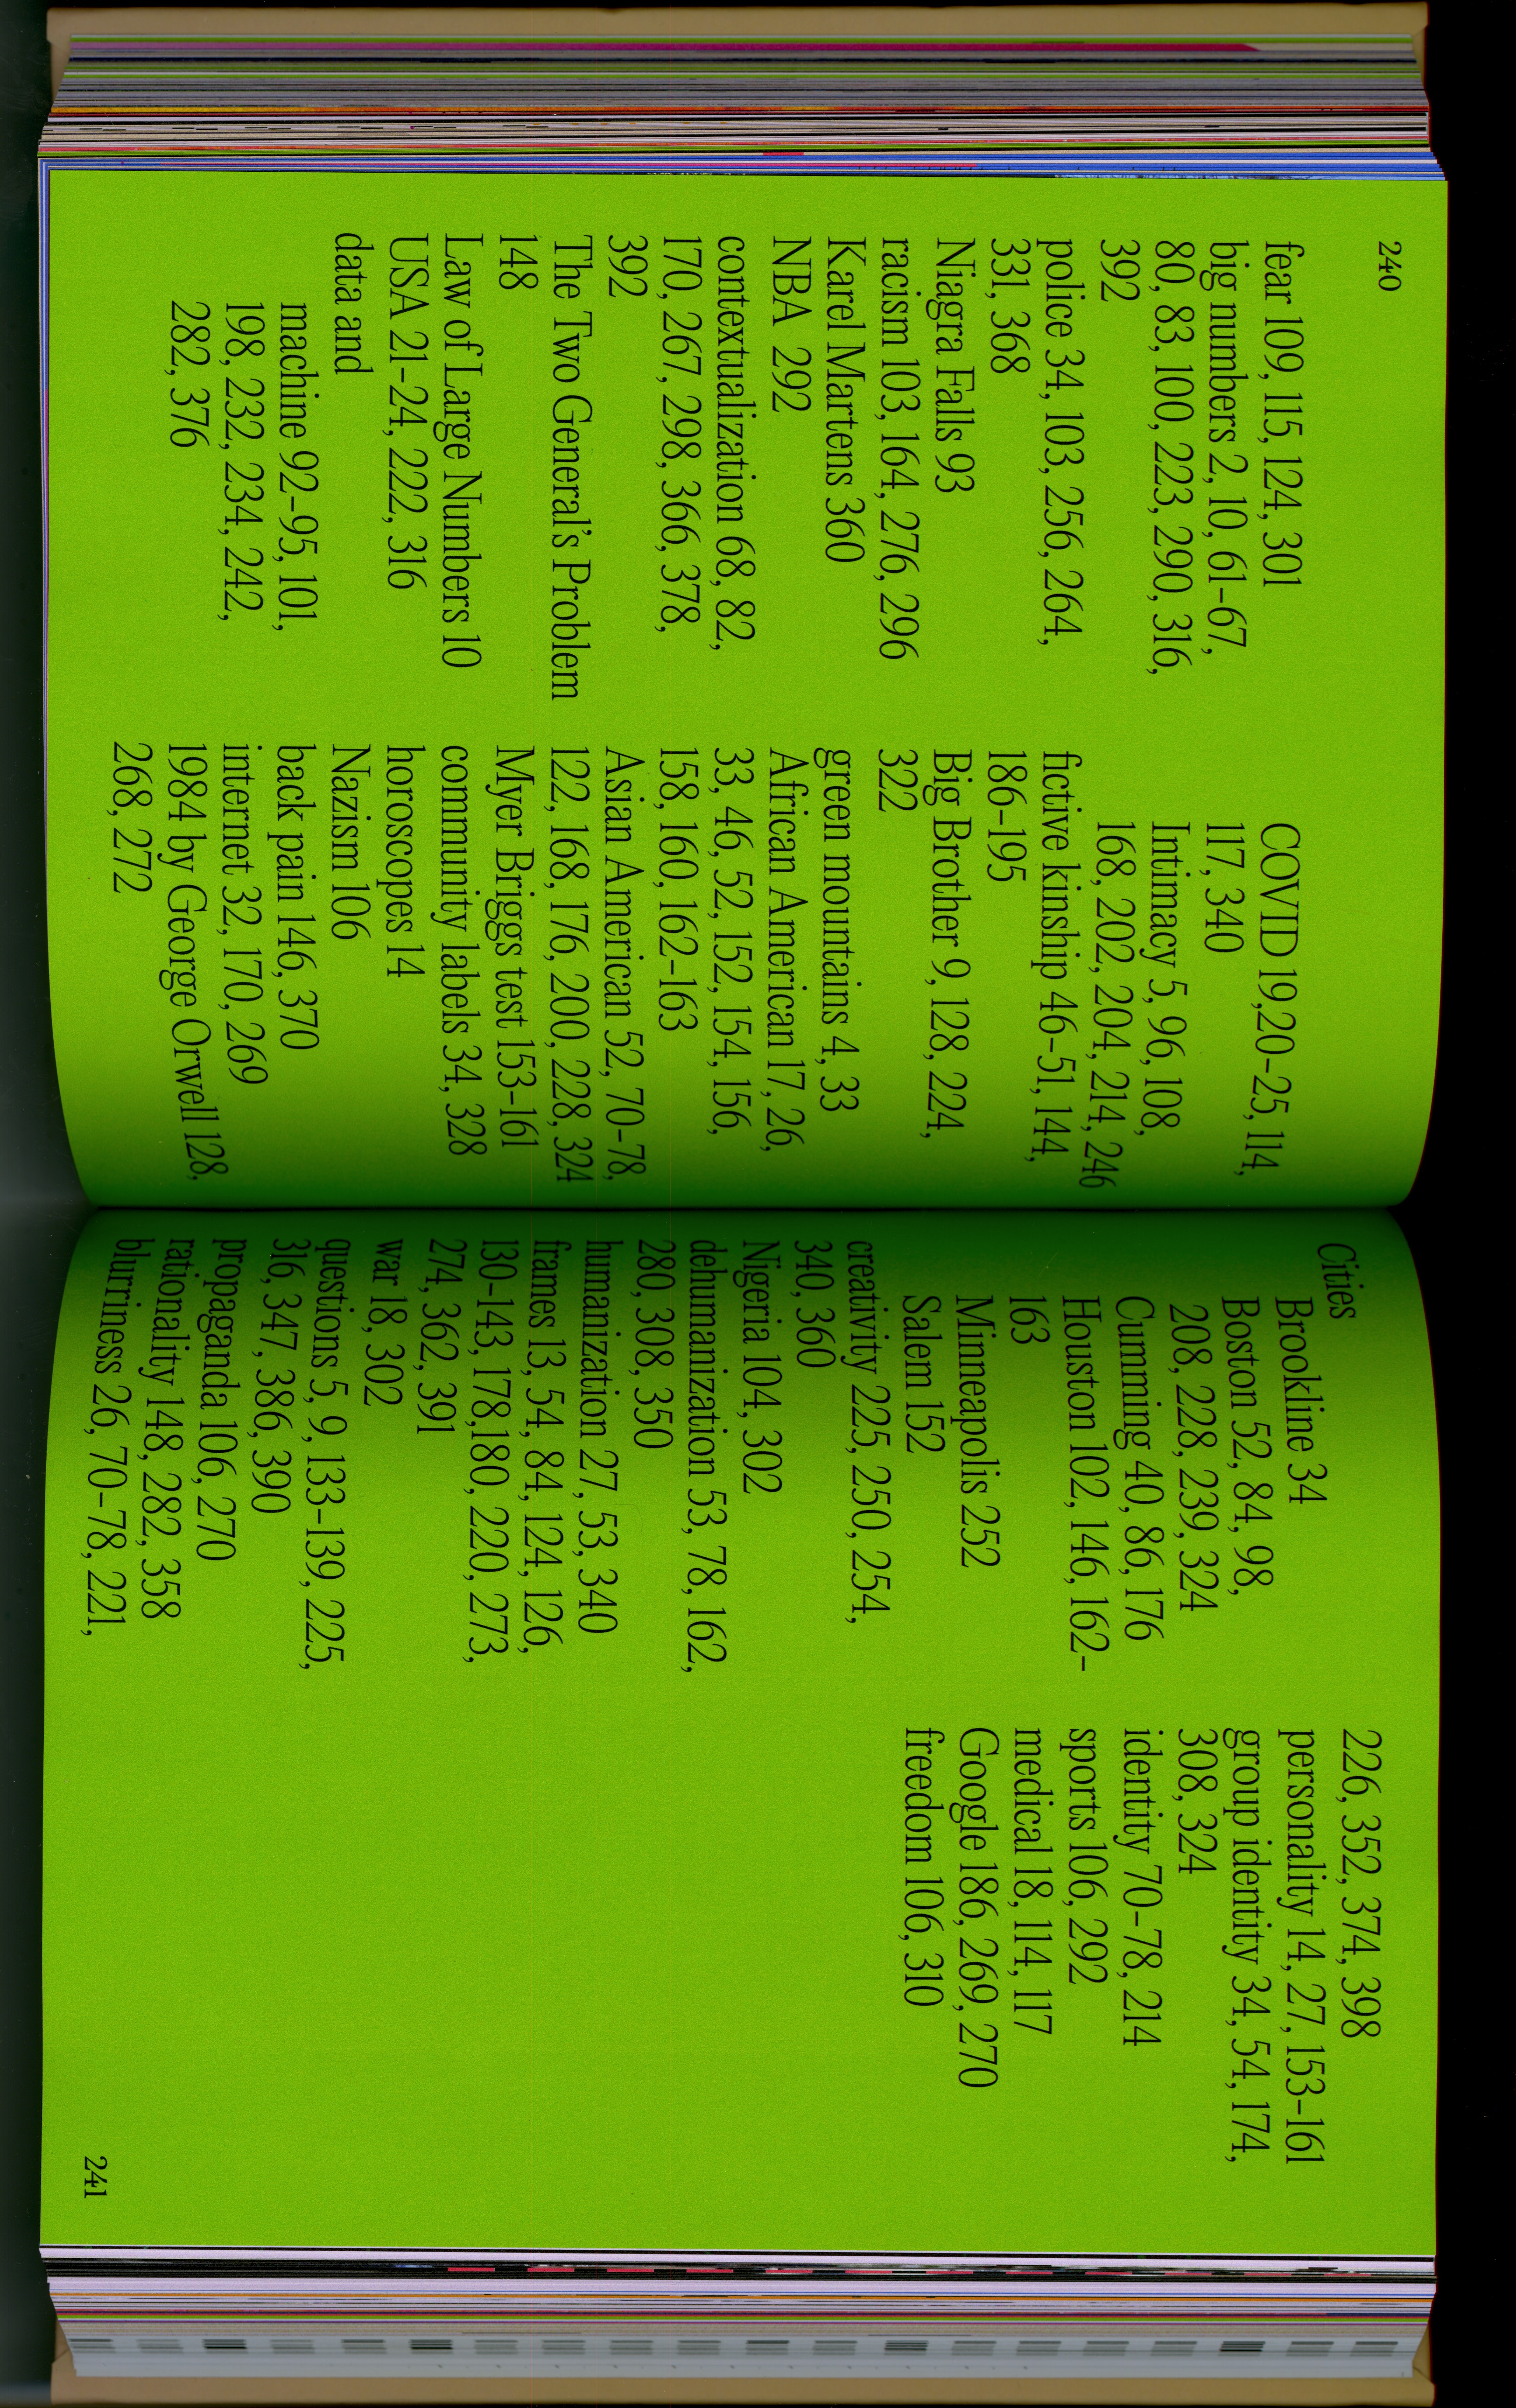 240
fear 109, 115, 124, 301
big numbers 2, 10, 61-67,
80, 83, 100, 223, 290, 316,
392
police 34, 103, 256, 264,
331, 368
Niagra Falls 93
racism 103, 164, 276, 296
Karel Martens 360
NBA 292
contextualization 68, 82,
170, 267, 298, 366, 378,
392
The Two General's Problem
148
Law of Large Numbers 10
USA 21-24, 222, 316
data and
machine 92-95, 101,
198, 232, 234, 242,
282, 376
COVID 19,20-25, 114,
117, 340
Intimacy 5, 96, 108,
168, 202, 204, 214, 246
fictive kinship 46-51, 144,
186-195
Big Brother 9, 128, 224,
322
green mountains 4, 33
African American 17, 26,
33, 46, 52, 152, 154, 156,
158, 160, 162-163
Asian American 52, 70-78,
122, 168, 176, 200, 228, 324
Myer Briggs test 153-161
community labels 34, 328
horoscopes 14
Nazism 106
back pain 146, 370
internet 32, 170, 269
1984 by George Orwell 128,
268, 272
Cities
Brookline 34
Boston 52, 84, 98,
208, 228, 239, 324
Cumming 40, 86, 176
Houston 102, 146, 162-
163
Minneapolis 252
Salem 152
creativity 225, 250, 254,
340, 360
Nigeria 104, 302
dehumanization 53, 78, 162,
280, 308, 350
humanization 27, 53, 340
frames 13, 54, 84, 124, 126,
130-143, 178,180, 220, 273,
274, 362, 391
war 18, 302
questions 5, 9, 133-139, 225,
316, 347, 386, 390
propaganda 106, 270
rationality 148, 282, 358
blurriness 26, 70-78, 221,
226, 352, 374, 398
personality 14, 27, 153-161
group identity 34, 54, 174,
308, 324
identity 70-78, 214
sports 106, 292
medical 18, 114, 117
Google 186, 269, 270
freedom 106, 310
241